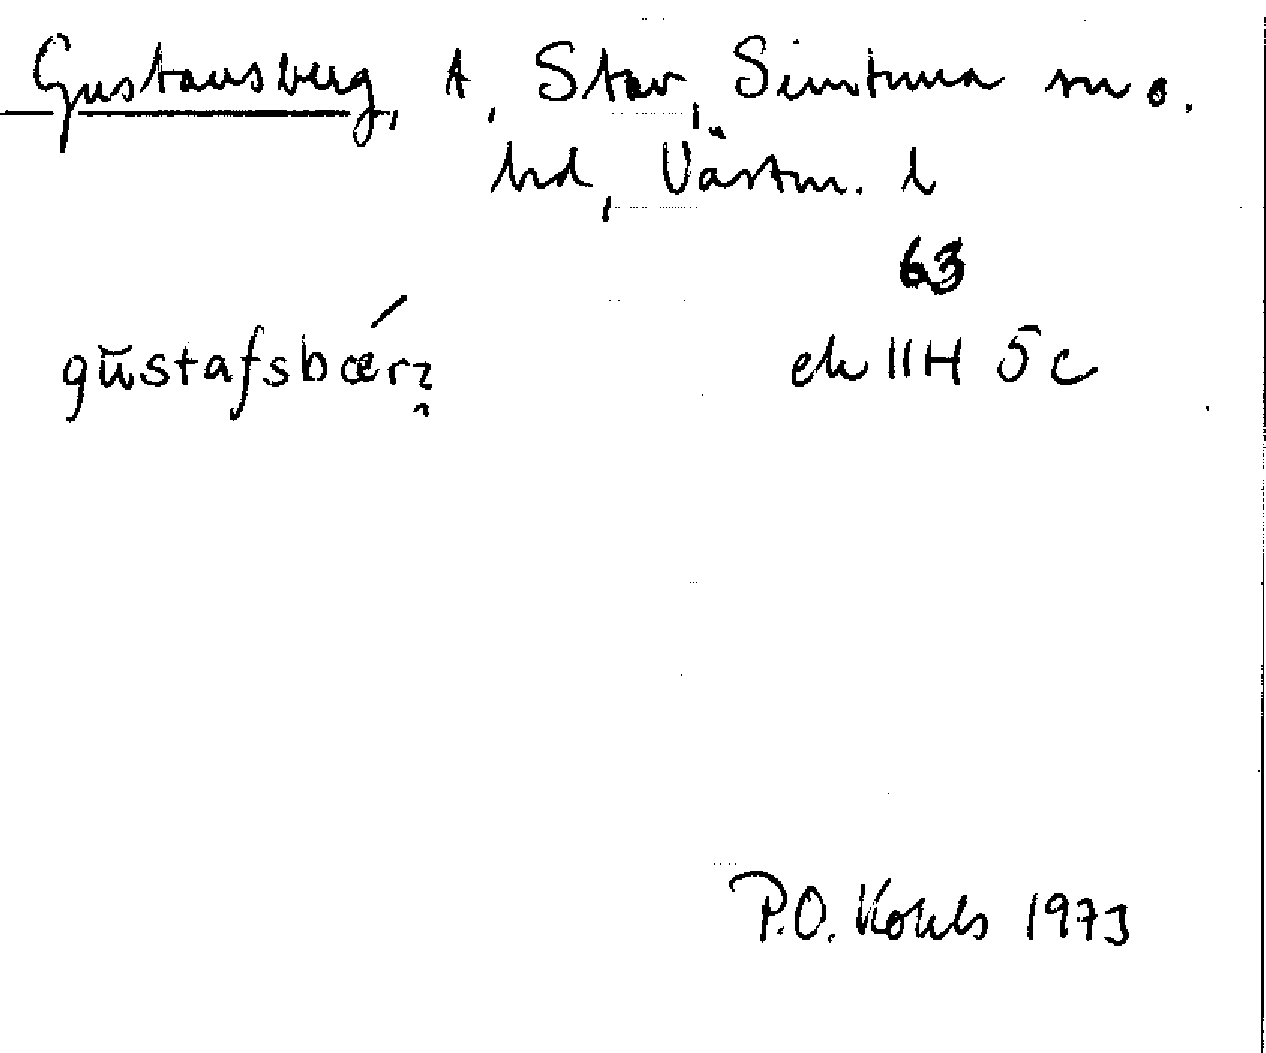 Gustavsberg, t, Stav, Simtuna sn o.
hd, Västm. l
63
gu̅stafsbær
ek 11H 5c
P.O. Kohls 1973